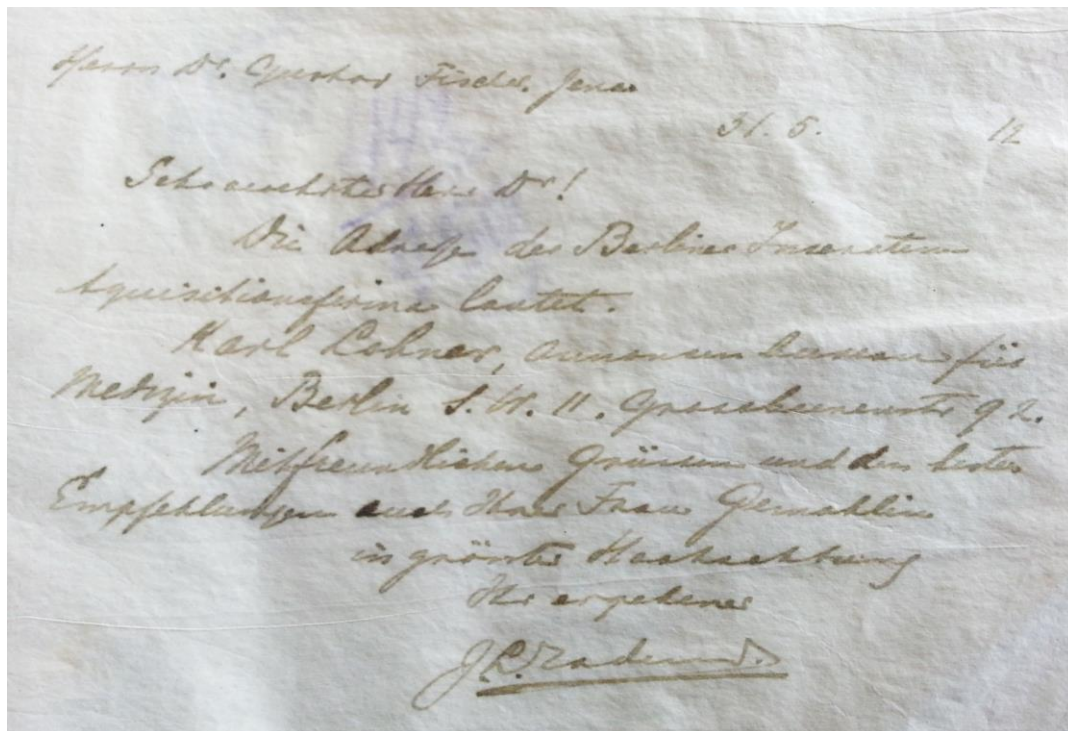 Herrn Dr. Gustav Fischer, Jena
31. 5. 12
Sehr geehrter Herr Dr!
Die Adresse der Berliner Inseraten
Aquisitionsfirma lautet.
Karl Lohner, Annoncen bureau für
Medizin, Berlin S. W. 11. Grossbeerenstr 92.
Mit freundlichen Grüssen und den besten
Empfehlungen auch Ihrer Frau Gemahlin
in grösster Hochachtung
Ihr ergebener